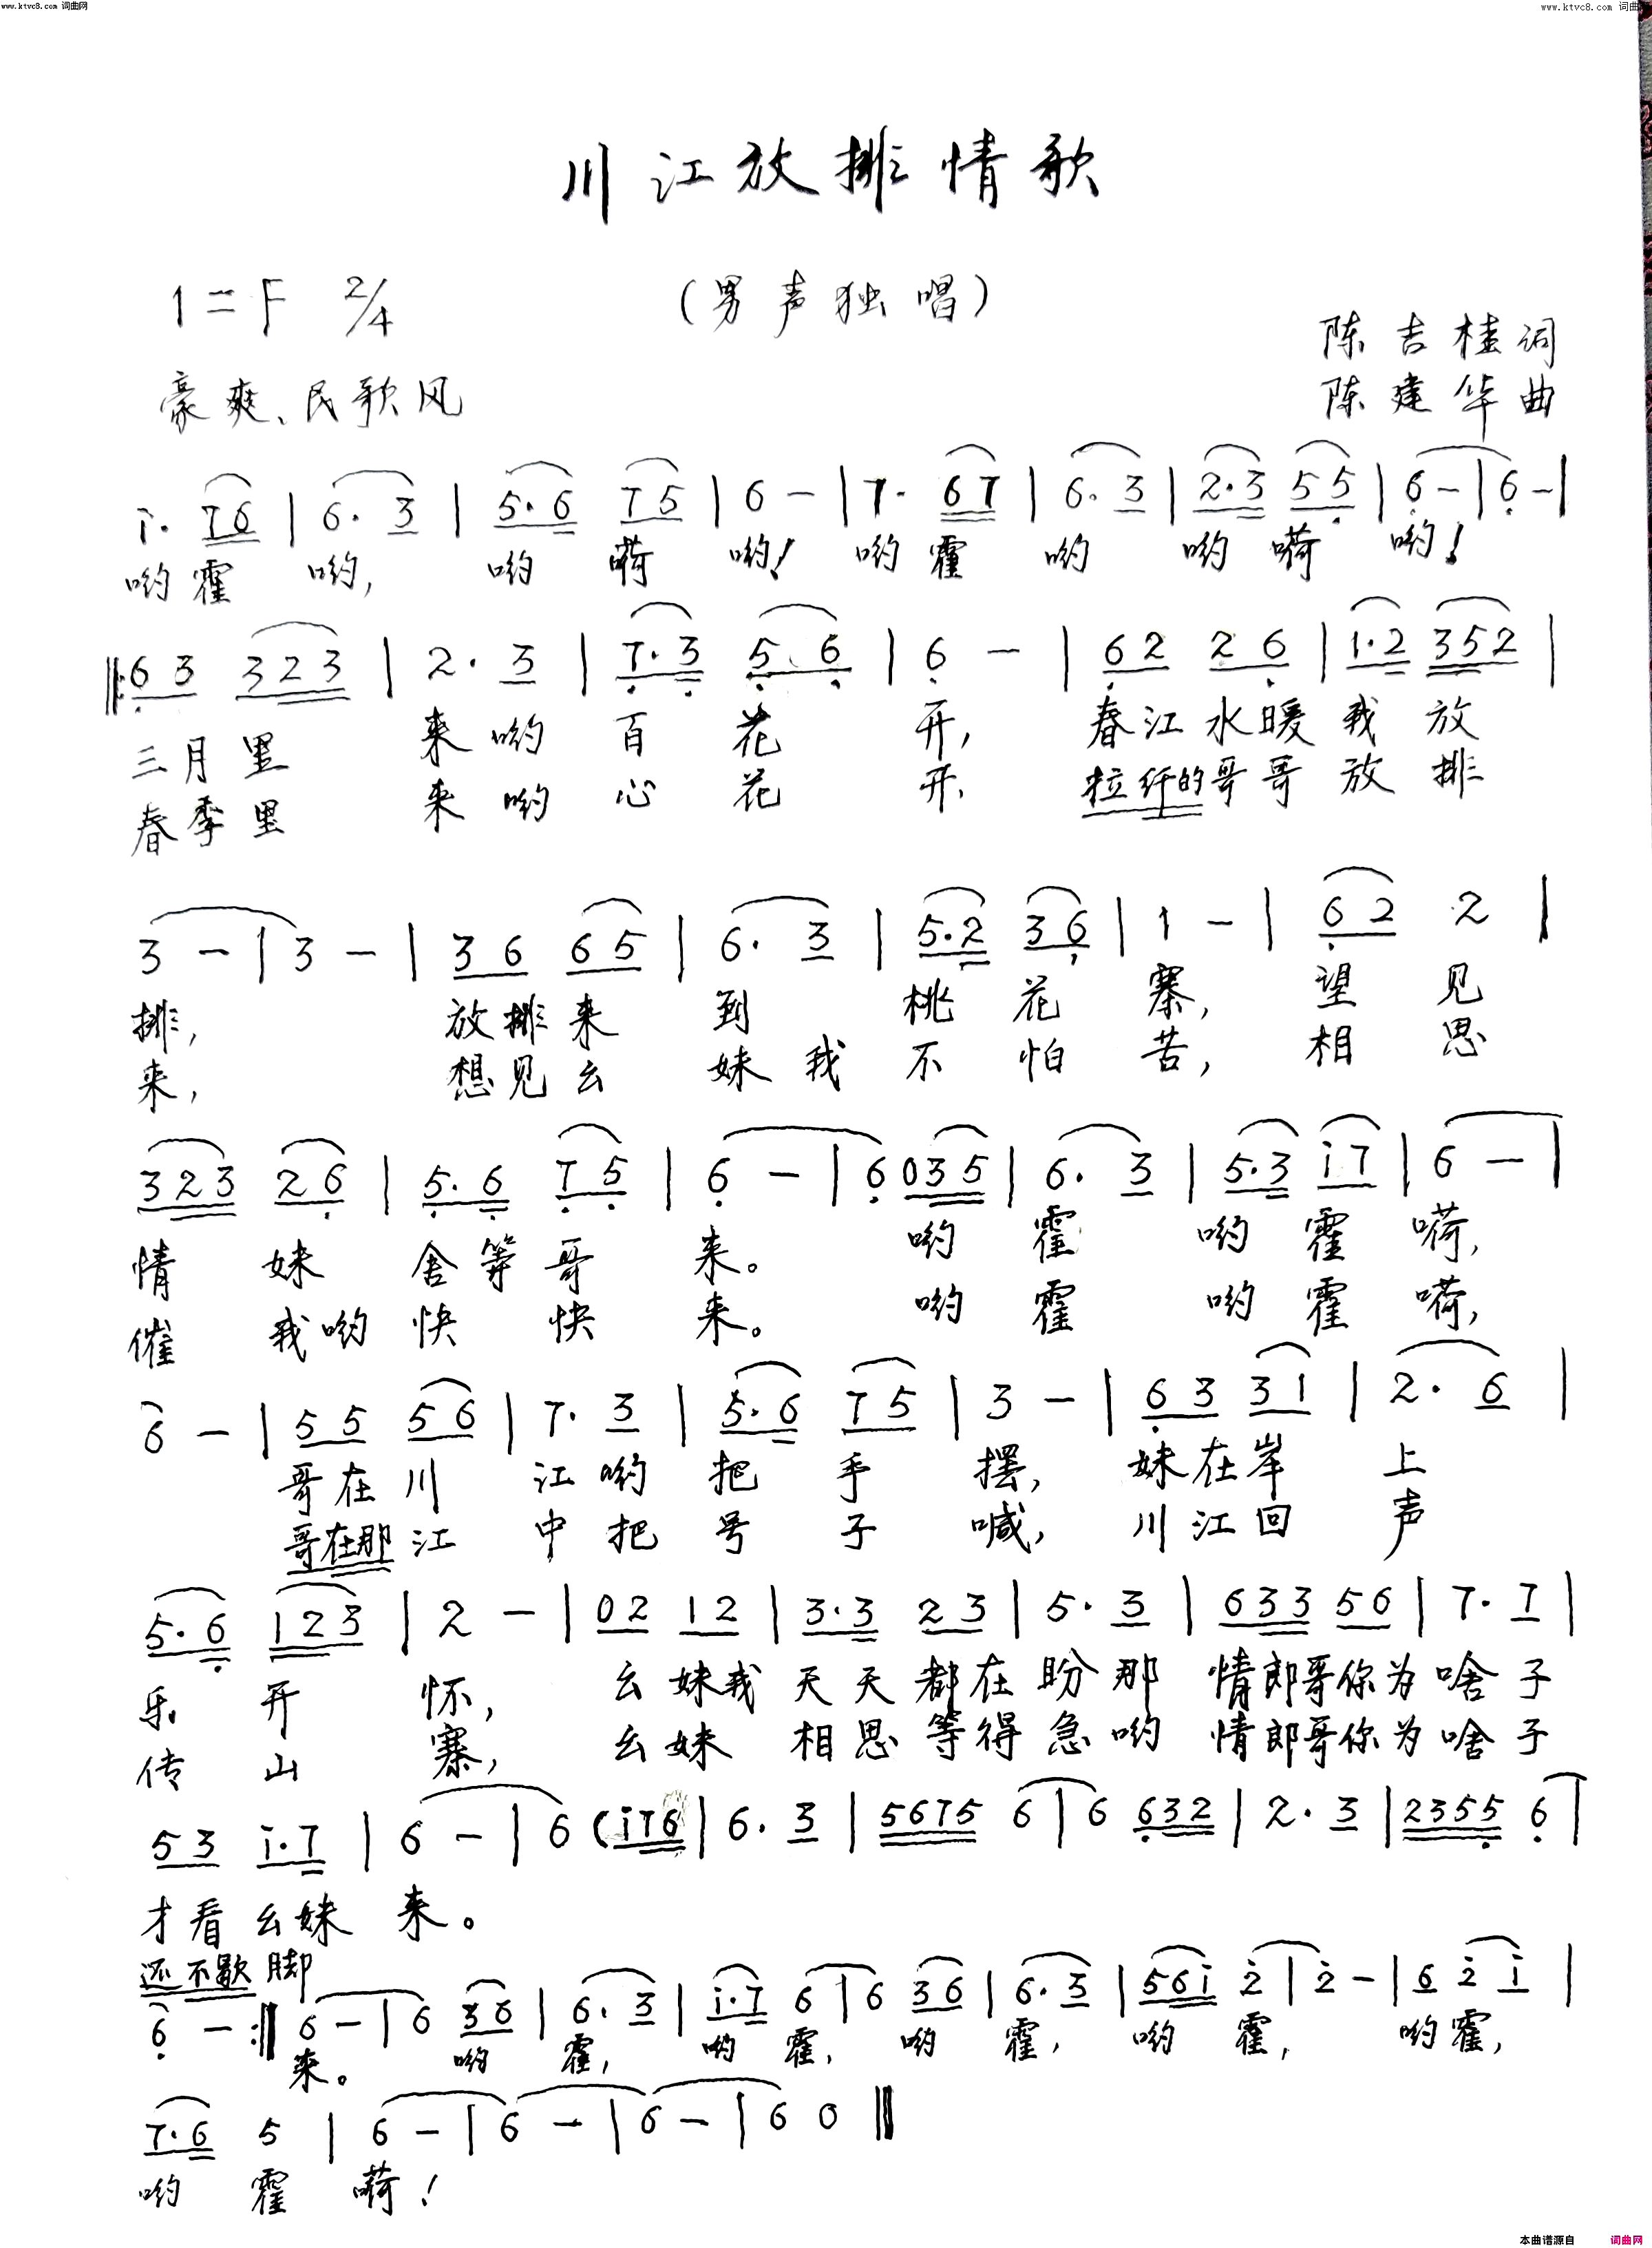 www.ktvc8.com 词曲网 www.ktvc8.com 词曲网
川江放排情歌
1=F 2/4 (男声独唱)
陈吉桂词
豪爽、民歌风 陈建华曲
i· 76 | 6· 3 | 5·6 75 | 6 - | 7· 67 | 6· 3 | 2·3 55 | 6 - | 6 - |
哟霍 哟, 哟 嗬 哟! 哟霍 哟 哟 嗬 哟!
‖: 63 323 | 2· 3 | 7·3 56 | 6 - | 62 26 | 1·2 352 |
三月里 来哟 百花 开, 春江水暖我放
春季里 来哟 心花 开, 拉纤的哥哥放排
3 - | 3 - | 36 65 | 6· 3 | 5·2 36 | 1 - | 62 2 |
排, 放排来 到 桃花 寨, 望见
来, 想见幺 妹我 不怕 苦, 相思
323 26 | 5·6 75 | 6 - | 6 035 | 6· 3 | 5·3 i7 | 6 - |
情妹 舍等哥 来。 哟 霍 哟霍 嗬,
催我哟 快快 来。 哟 霍 哟霍 嗬,
6 - | 55 56 | 7· 3 | 5·6 75 | 3 - | 63 31 | 2· 6 |
哥在川 江哟 把手 摆, 妹在岸 上
哥在那江 中把 号子 喊, 川江回 声
5·6 123 | 2 - | 02 12 | 3·3 23 | 5· 3 | 633 56 | 7· 7 |
乐开 怀, 幺妹我 天天都在 盼那 情郎哥你为 啥子
传山 寨, 幺妹 相思等得 急哟 情郎哥你为 啥子
53 i·7 | 6 - | 6 (i76 | 6· 3 | 5675 6 | 6 632 | 2· 3 | 2355 6 |
才看幺妹 来。
还不歇脚
6 - :‖ 6 - | 6 36 | 6· 3 | i·7 6 | 6 36 | 6· 3 | 56i 2 | 2 - | 6 2 i |
来。 哟 霍, 哟 霍, 哟 霍, 哟 霍, 哟霍,
7·6 5 | 6 - | 6 - | 6 - | 6 0 ‖
哟 霍 嗬!
本曲谱源自 词曲网